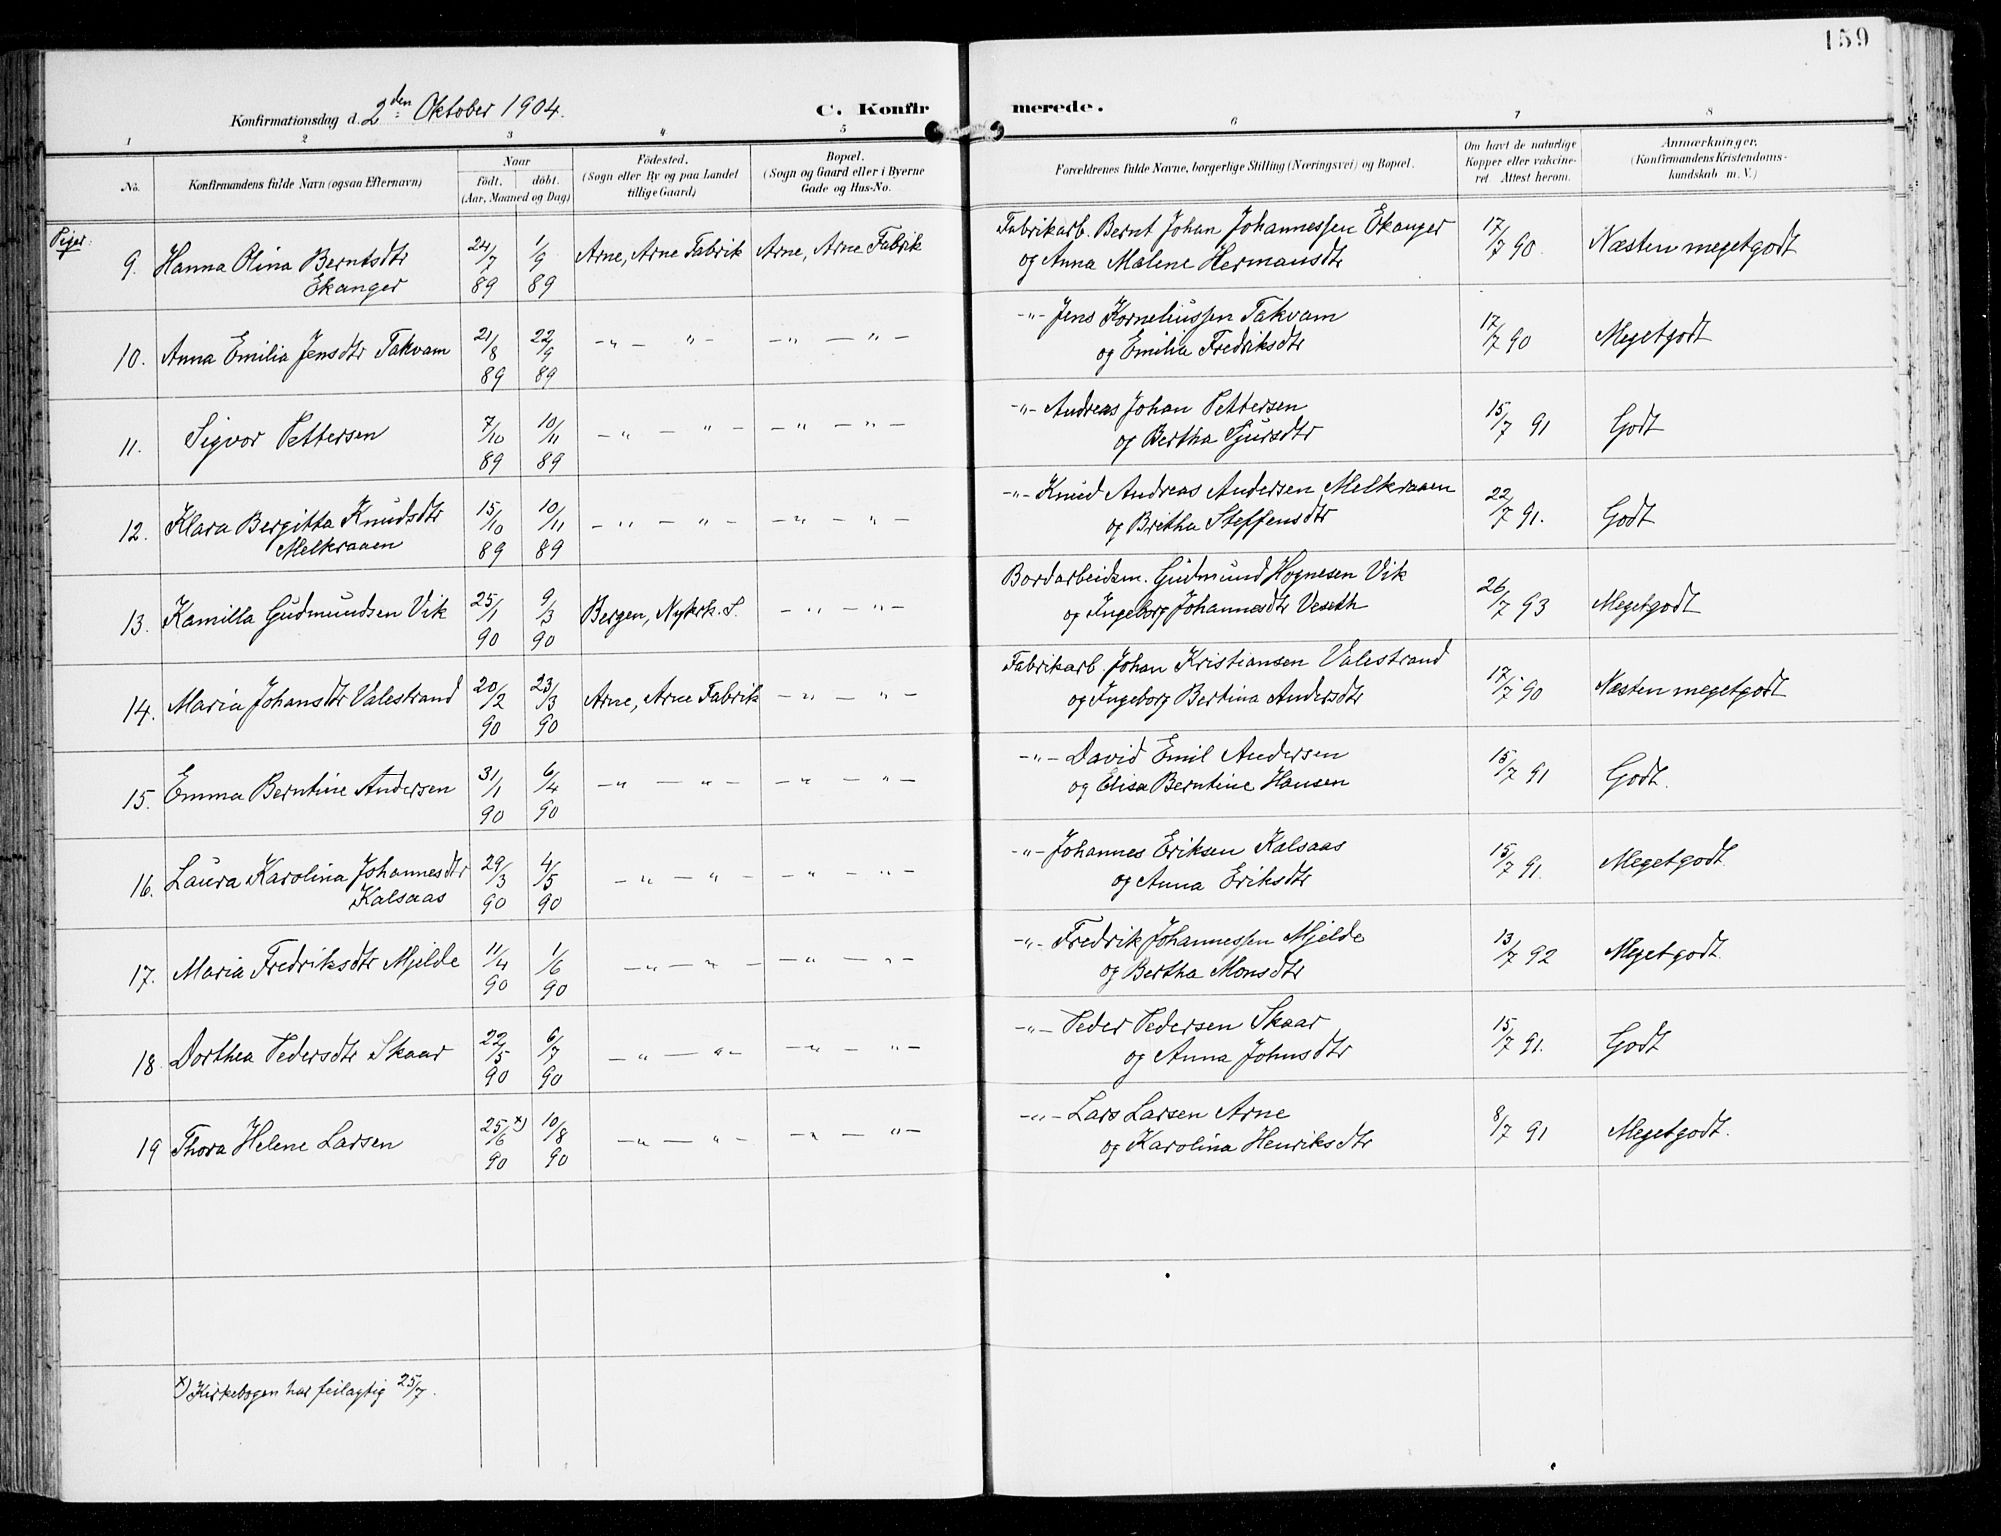 159
Konfirmationsdag d. 2den Oktober 1904.
C. Konfirmerede.
1 2 3 4 5 6 7 8
No.
Konfirmandens fulde Navn (ogsaa Efternavn)
Naar
födt. döbt.
(Aar, Maaned og Dag)
Födested.
(Sogn eller By og paa Landet
tillige Gaard)
Bopæl.
(Sogn og Gaard eller i Byerne
Gade og Hus-No.
Forældrenes fulde Navne, borgerlige Stilling (Næringsvei) og Bopæl.
Om havt de naturlige
Kopper eller vakcine-
ret. Attest herom.
Anmærkninger.
(Konfirmandens Kristendoms-
kundskab m. V.)
Piger:
9. Hanna Olina Berntsdtr 24/7 1/9 Arne, Arne Fabrik Arne, Arne Fabrik Fabrikarb. Bernt Johan Johannessen Ekanger 17/7 90. Næsten megetgodt
Ekanger 89 89 og Anna Malene Hermansdtr
10. Anna Emilia Jensdtr Takvam 21/8 22/9 -„- „- -„- „- -„- Jens Korneliussen Takvam 17/7 90 Megetgodt
89 89 og Emilia Fredriksdtr
11. Sigvor Pettersen 7/10 10/11 -„- „- -„- „- -„- Andreas Johan Pettersen 15/7 91 Godt
89 89 og Bertha Sjursdtr
12. Klara Bergitta Knudsdtr 15/10 10/11 -„- „- -„- „- -„- Knud Andreas Andersen Melkraaen 22/7 91. Godt
Melkraaen 89 89 og Britha Steffensdtr
13. Kamilla Gudmundsen Vik 25/1 9/3 Bergen, Nykrk. S. -„- „- Bordarbeidsm. Gudmund Hognesen Vik 26/7 93 Megetgodt
90 90 og Ingeborg Johannesdtr Veseth
14. Maria Johansdtr Valestrand 20/2 23/3 Arne, Arne Fabrik -„- „- Fabrikarb. Johan Kristiansen Valestrand 17/7 90 Næsten megetgodt
90 90 og Ingeborg Bertina Andersdtr
15. Emma Berntine Andersen 31/1 6/4 -„- „- -„- „- -„- David Emil Andersen 15/7 91 Godt.
90 90 og Elisa Berntine Hansen
16. Laura Karolina Johannesdtr 29/3 4/5 -„- „- -„- „- -„- Johannes Eriksen Kalsaas 15/7 91. Megetgodt.
Kalsaas 90 90 og Anna Eriksdtr
17. Maria Fredriksdtr Mjelde 11/4 1/6 -„- „- -„- „- -„- Fredrik Johannessen Mjelde 13/7 92 Megetgodt.
90 90 og Bertha Monsdtr
18. Dorthea Pedersdtr Skaar 22/5 6/7 -„- „- -„- „- -„- Peder Pedersen Skaar 15/7 91. Godt
90 90 og Anna Johnsdtr
19 Thora Helene Larsen 25/6 x) 10/8 -„- „- -„- „- -„- Lars Larsen Arne 8/7 91 Megetgodt.
90 90 og Karolina Henriksdtr
x) Kirkebogen har feilagtig 25/7.